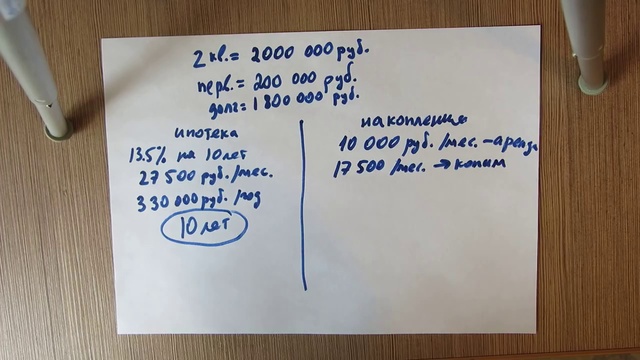 2 кв. = 2000 000 руб.
перв. = 200 000 руб.
долг = 1 800 000 руб.
ипотека
13.5% на 10 лет
27 500 руб./мес.
330 000 руб./год
10 лет
накопления
10 000 руб./мес. – аренда
17 500 /мес. → копим